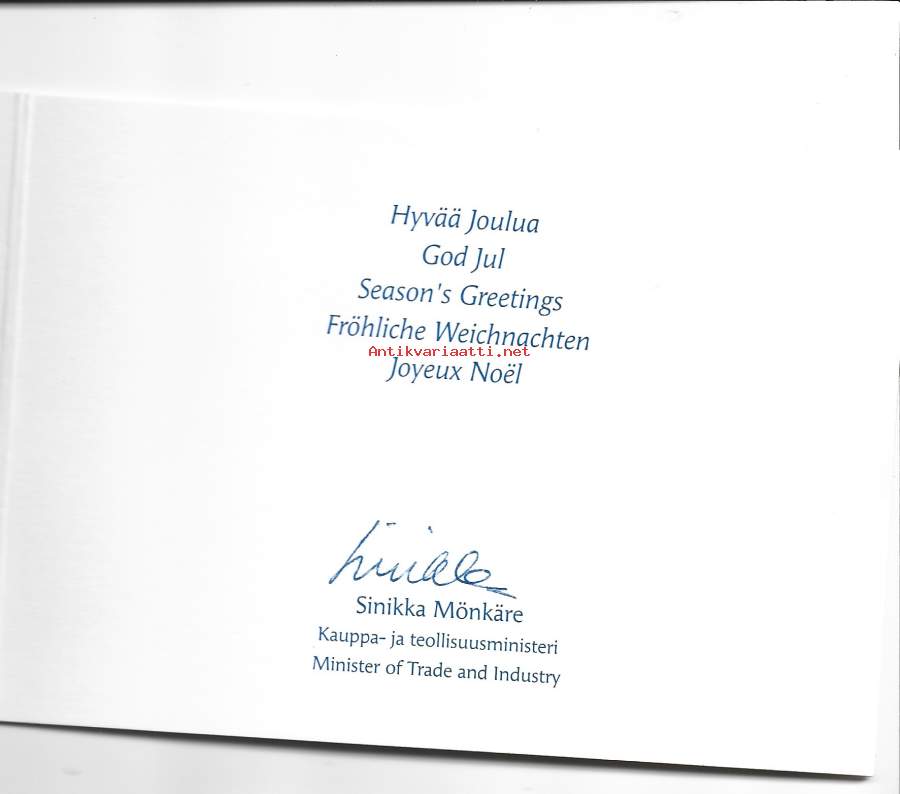 Hyvää Joulua
God Jul
Season's Greetings
Fröhliche Weichnachten
Antikvariaatti.net
Joyeux Noël
Sinikka
Sinikka Mönkäre
Kauppa- ja teollisuusministeri
Minister of Trade and Industry